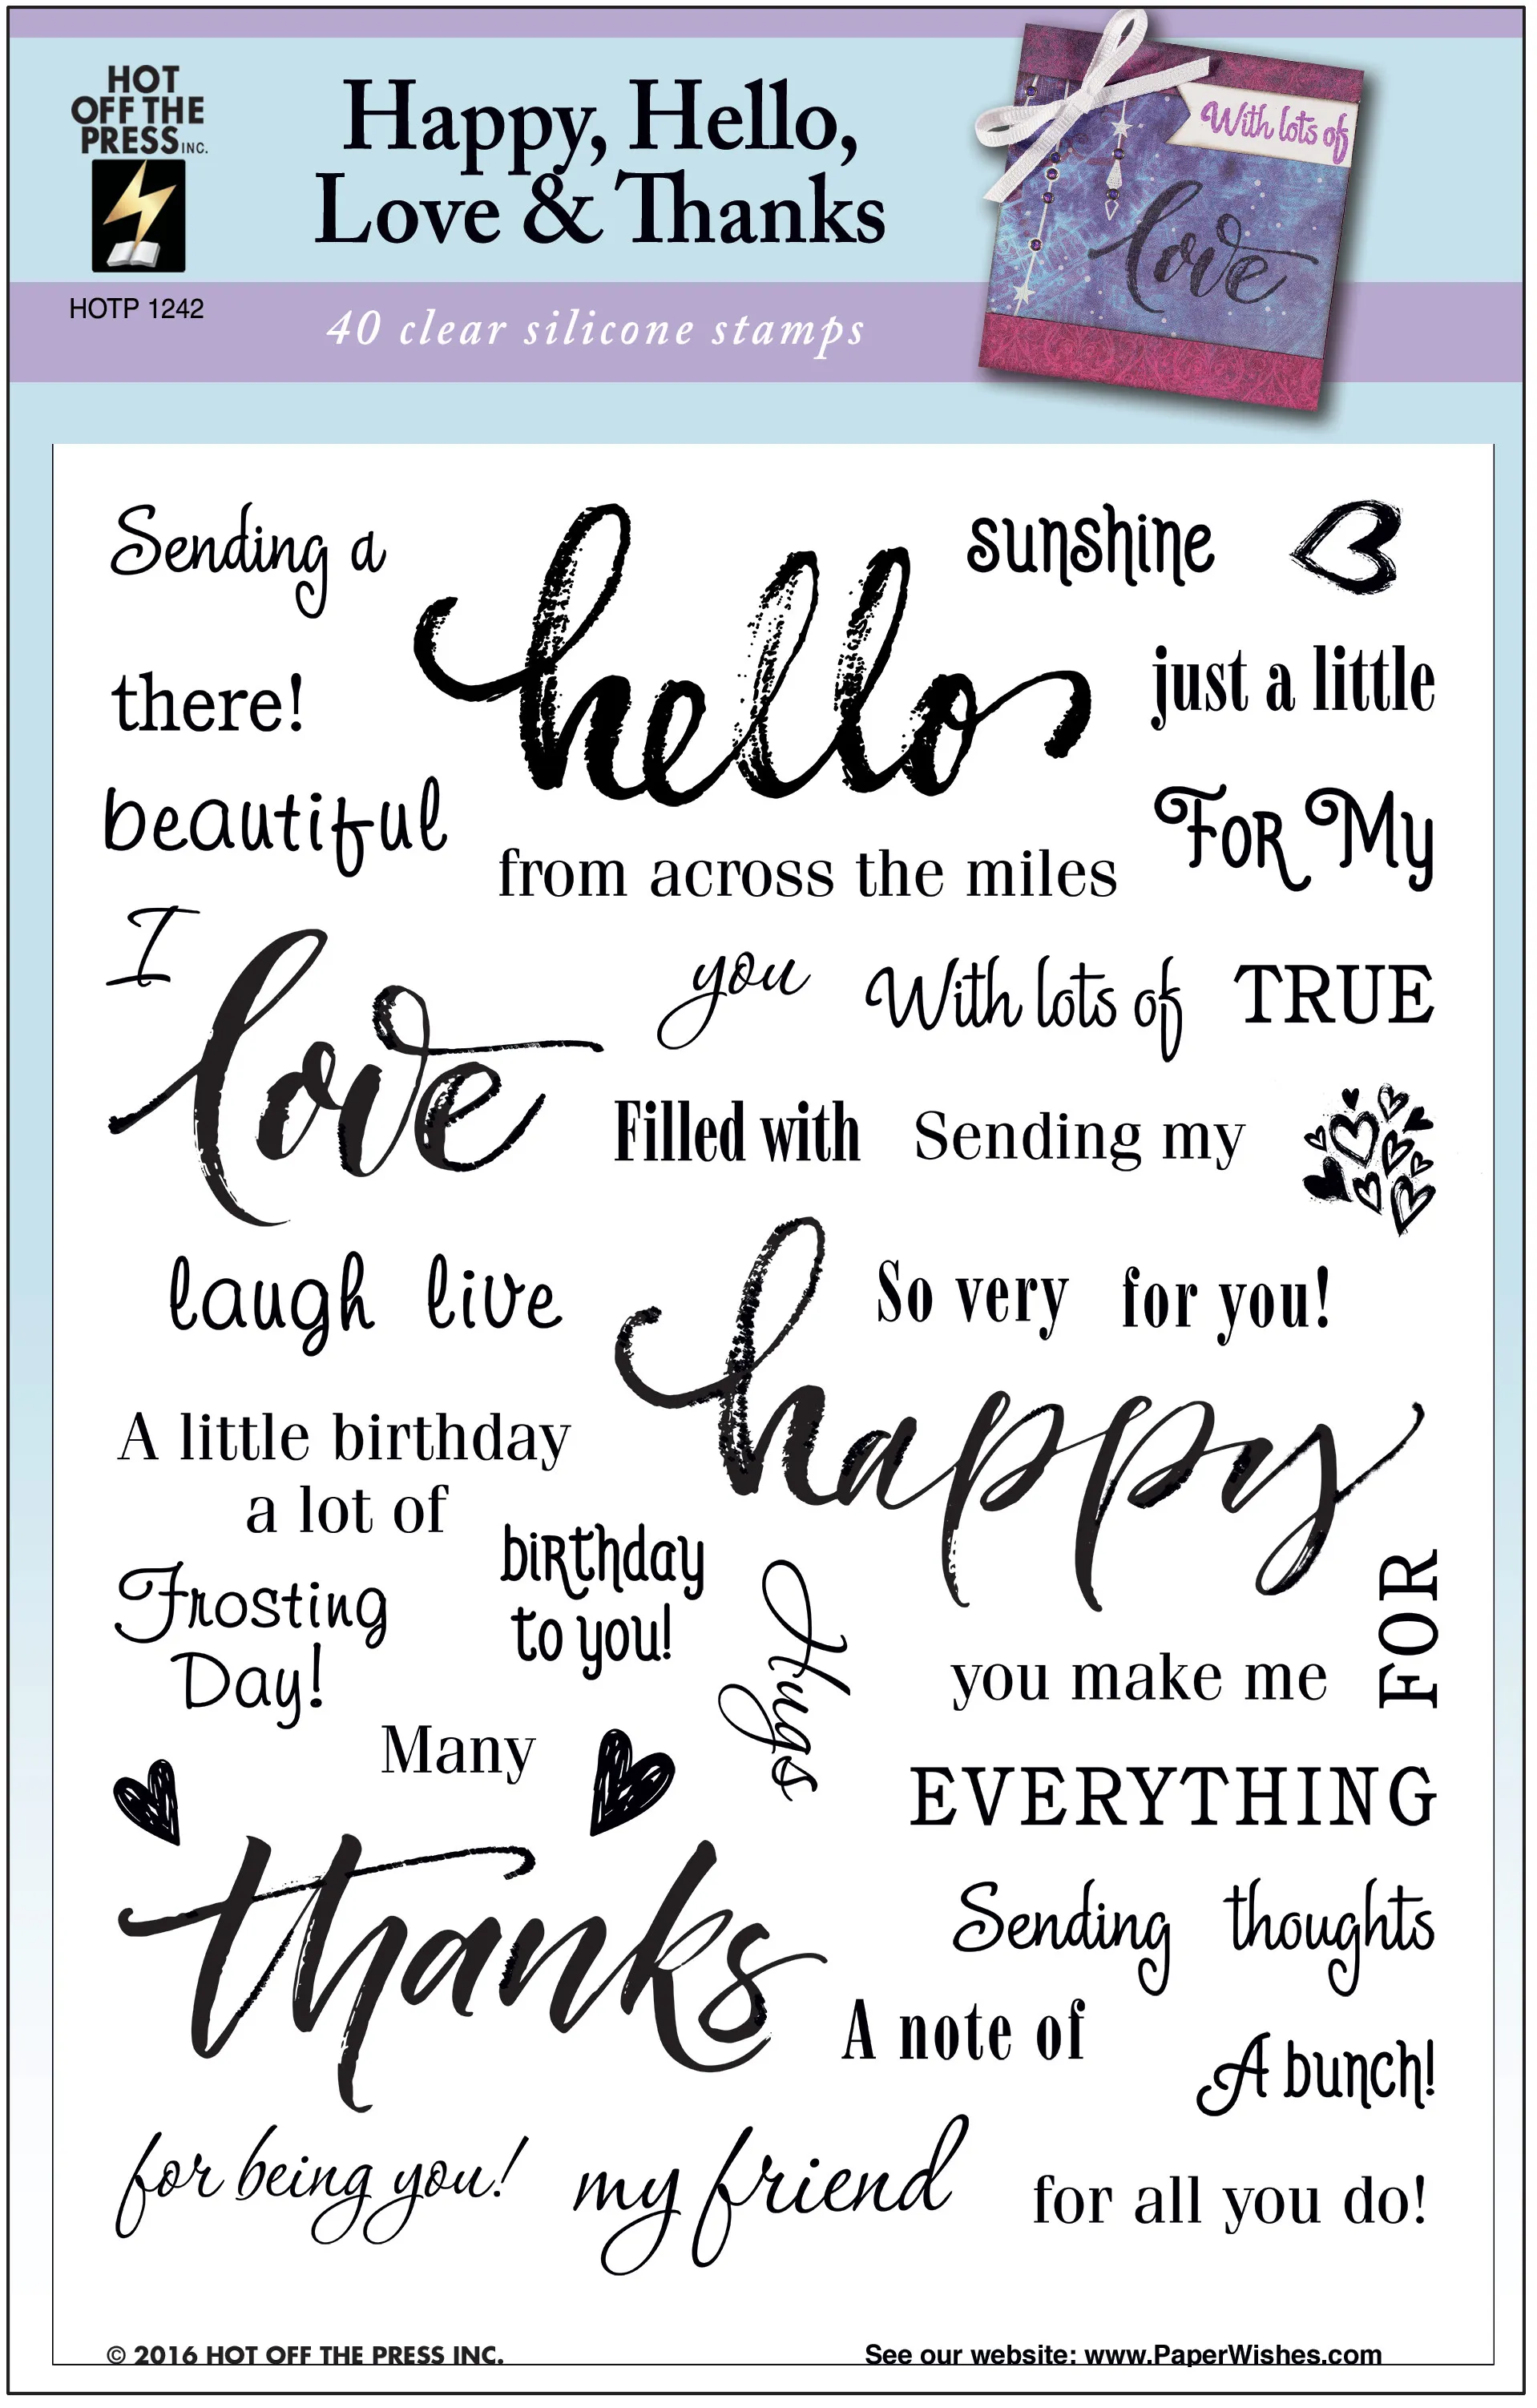 HOT
OFF THE
PRESS INC.
HOTP 1242
Happy, Hello,
Love & Thanks
40 clear silicone stamps
With lots of
love
Sending a
hello
sunshine
there!
just a little
beautiful
from across the miles
For My
I
love
you
With lots of
TRUE
Filled with
Sending my
laugh
live
happy
So very
for you!
A little birthday
a lot of
Frosting
Day!
birthday
to you!
Hugs
you make me
FOR
Many
EVERYTHING
thanks
Sending
thoughts
A note of
A bunch!
for being you!
my friend
for all you do!
© 2016 HOT OFF THE PRESS INC.
See our website: www.PaperWishes.com